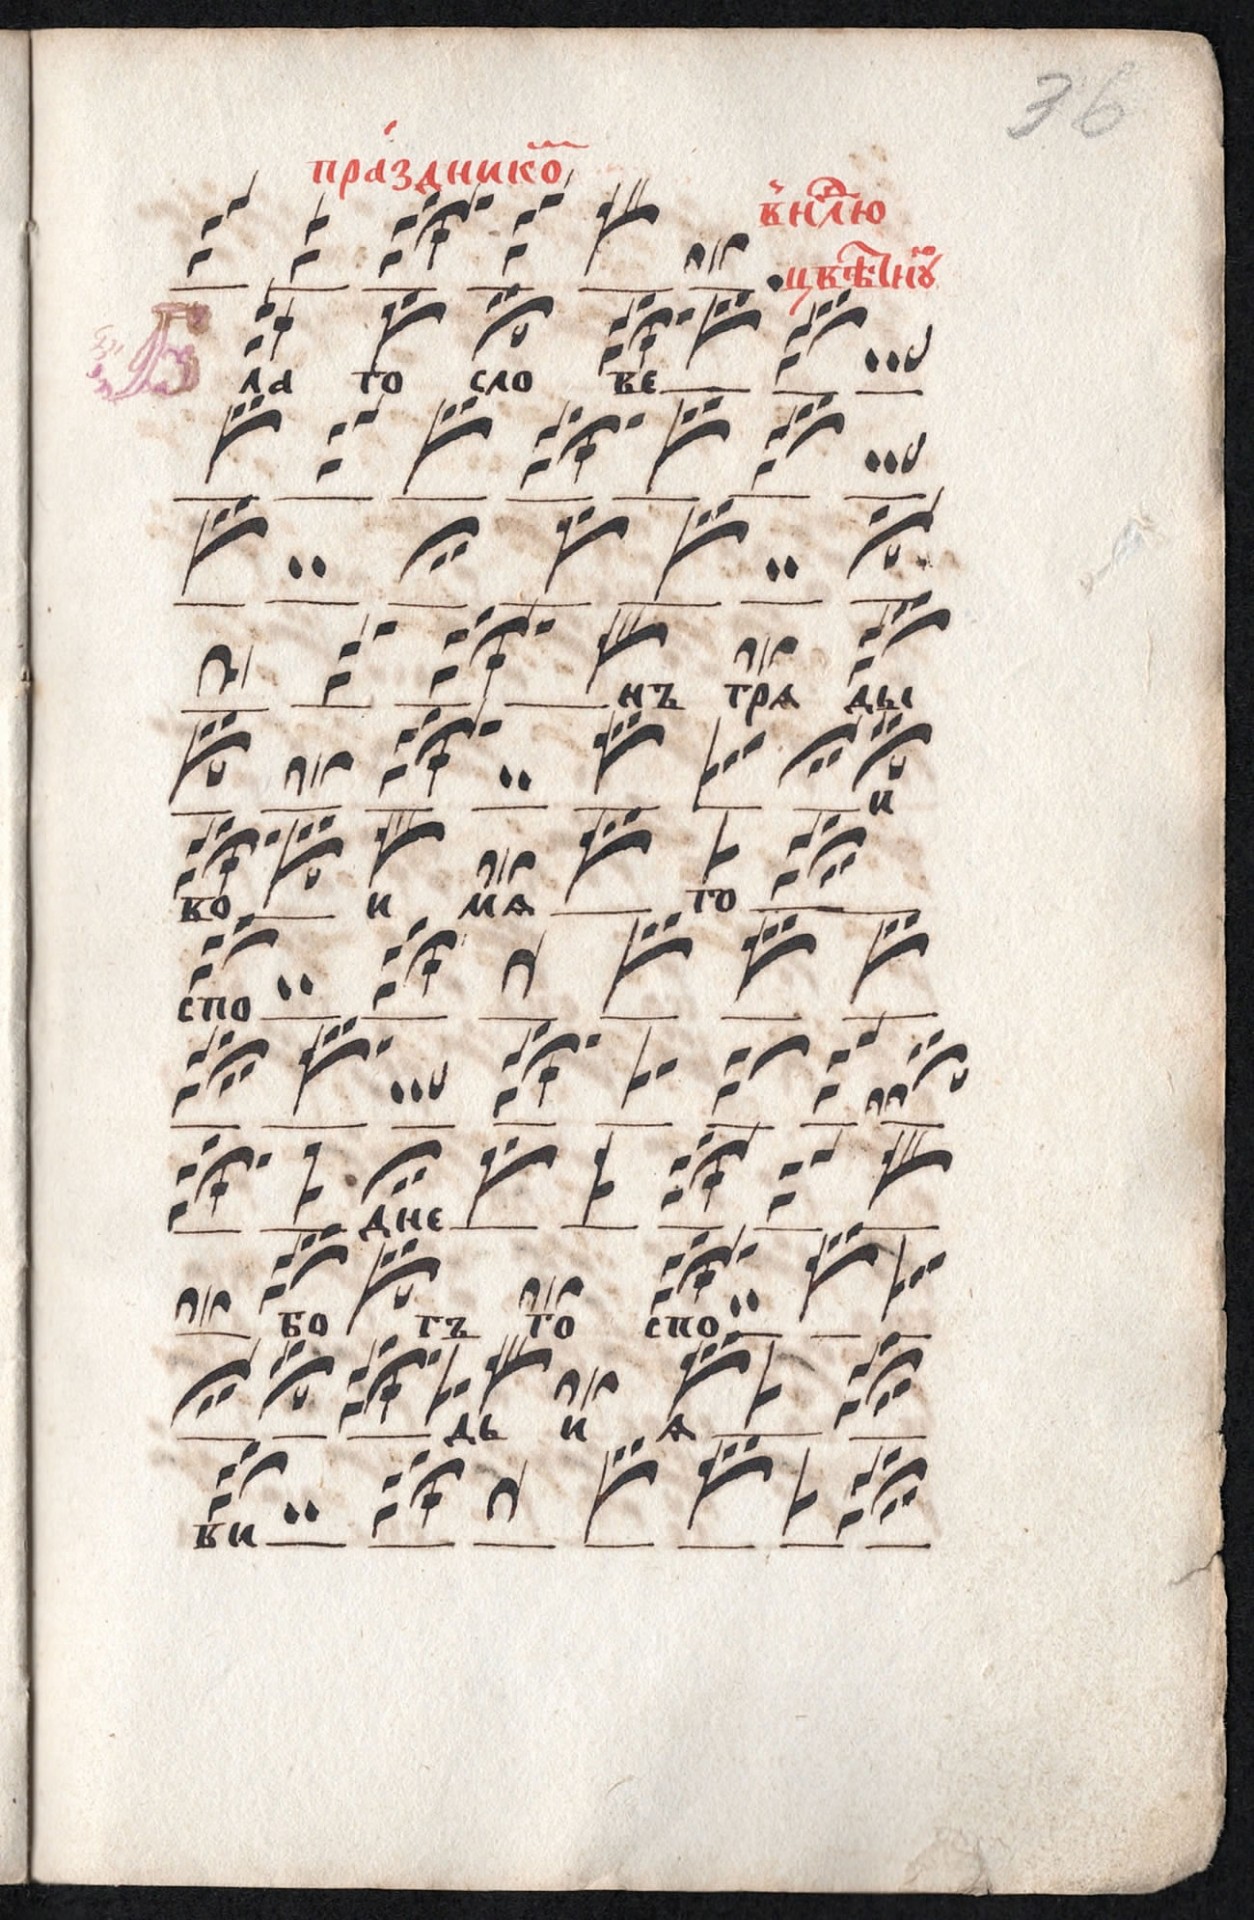 36
пра́здникѡ
в нлю
цвѣнꙋ
Б ла го сло ве
нъ грѧ ды
и
ко и мѧ го
спо
дне
бо гъ го спо
дь и ѧ
ви